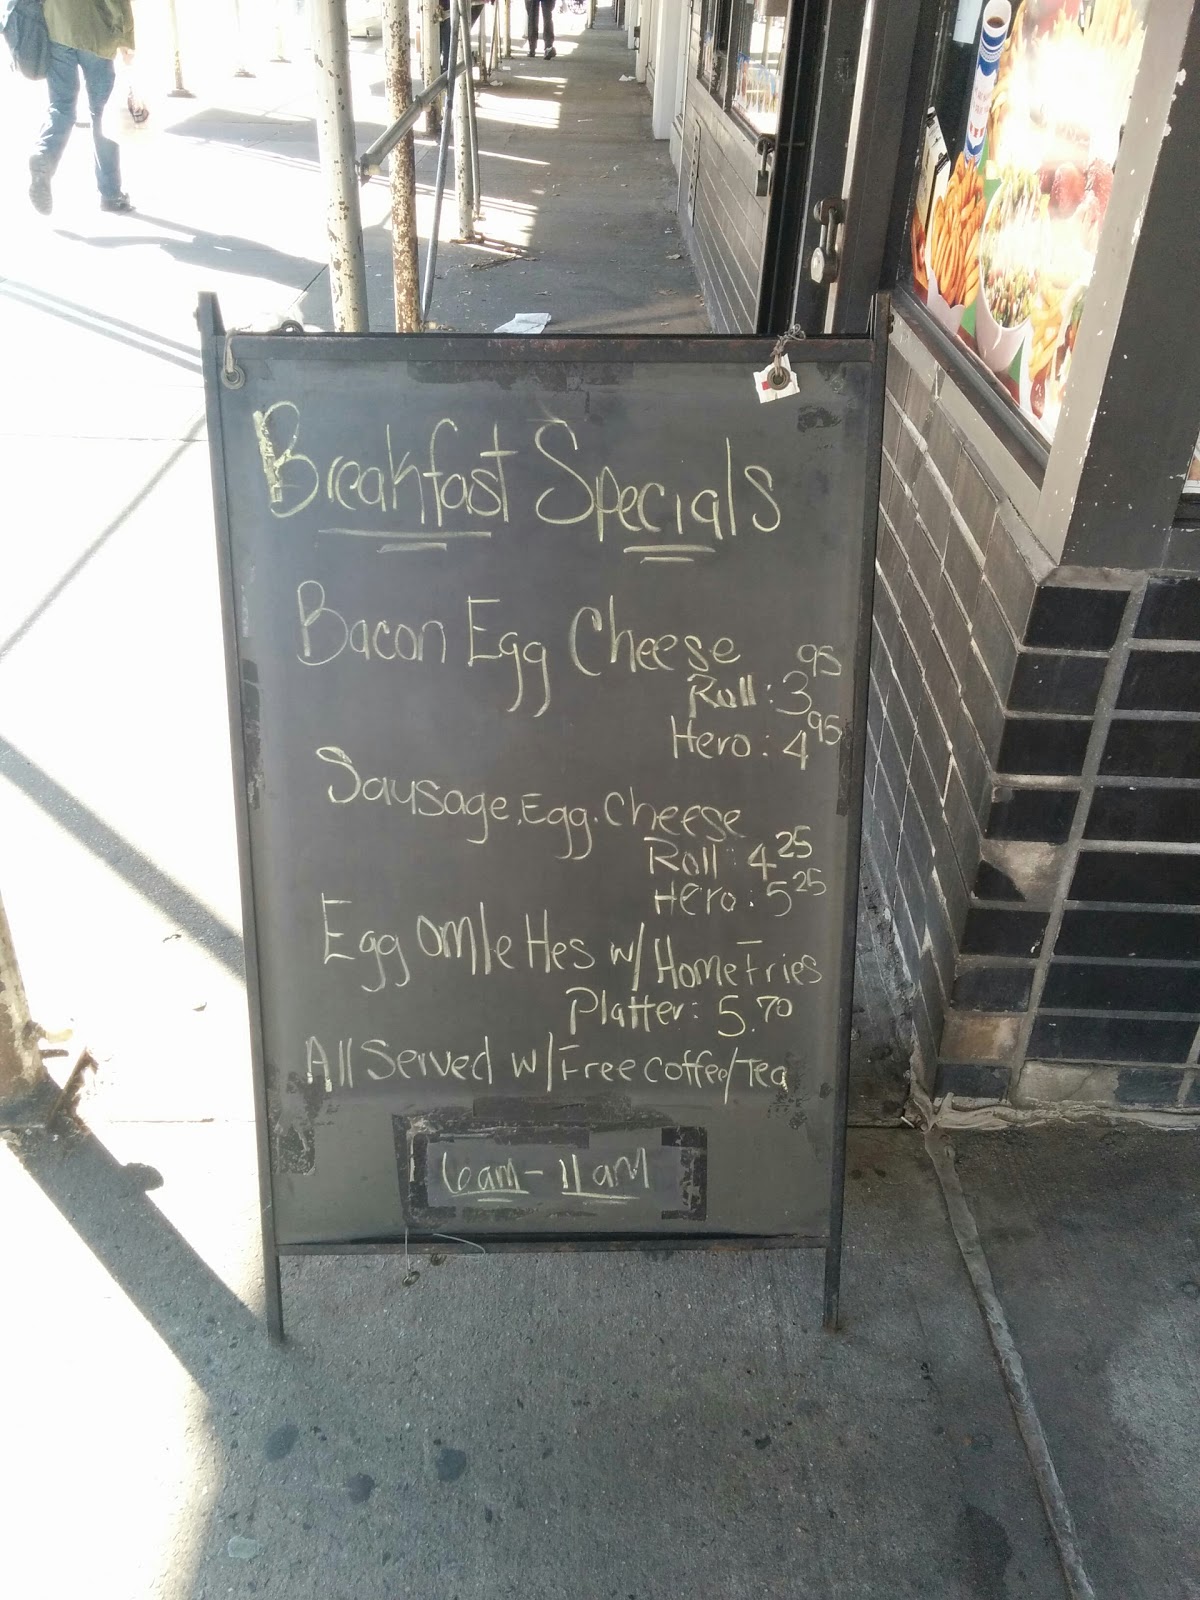 Breakfast Specials
Bacon Egg Cheese
Roll: 3 95
Hero: 4 95
Sausage, Egg. Cheese
Roll 4 25
Hero: 5 25
Egg omleHes w/ Home Fries
Platter: 5.70
All Served w/ Free coffee/Tea
6am - 11am